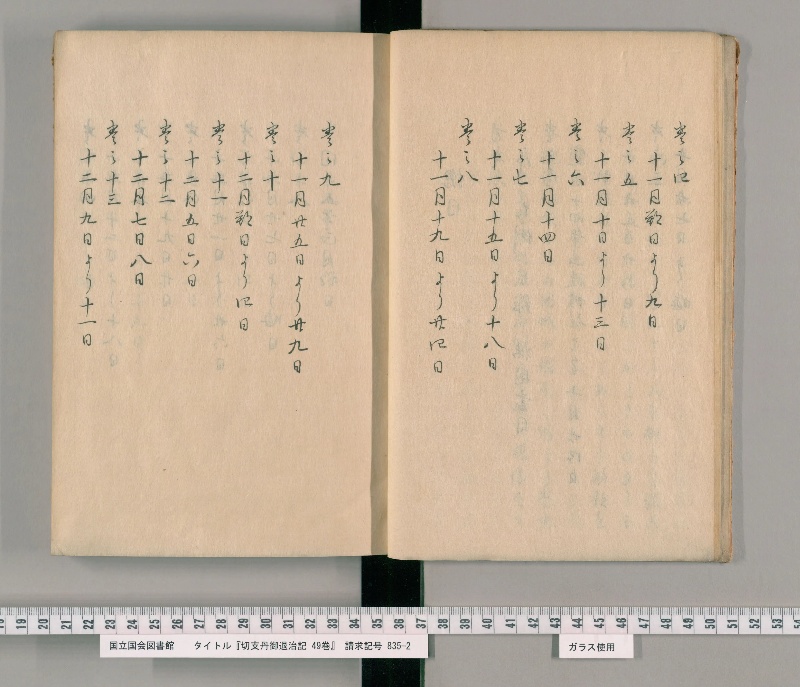 巻之四
十一月朔日より九日
巻之五
十一月十日より十三日
巻之六
十一月十四日
巻之七
十一月十五日より十八日
巻之八
十一月十九日より廿四日
巻之九
十一月廿五日より廿九日
巻之十
十二月朔日より四日
巻之十一
十二月五日六日
巻之十二
十二月七日八日
巻之十三
十二月九日より十一日
19 20 21 22 23 24 25 26 27 28 29 30 31 32 33 34 35 36 37 38 39 40 41 42 43 44 45 46 47 48 49 50 51 52 53
国立国会図書館 タイトル『切支丹御退治記 49巻』 請求記号 835-2
ガラス使用